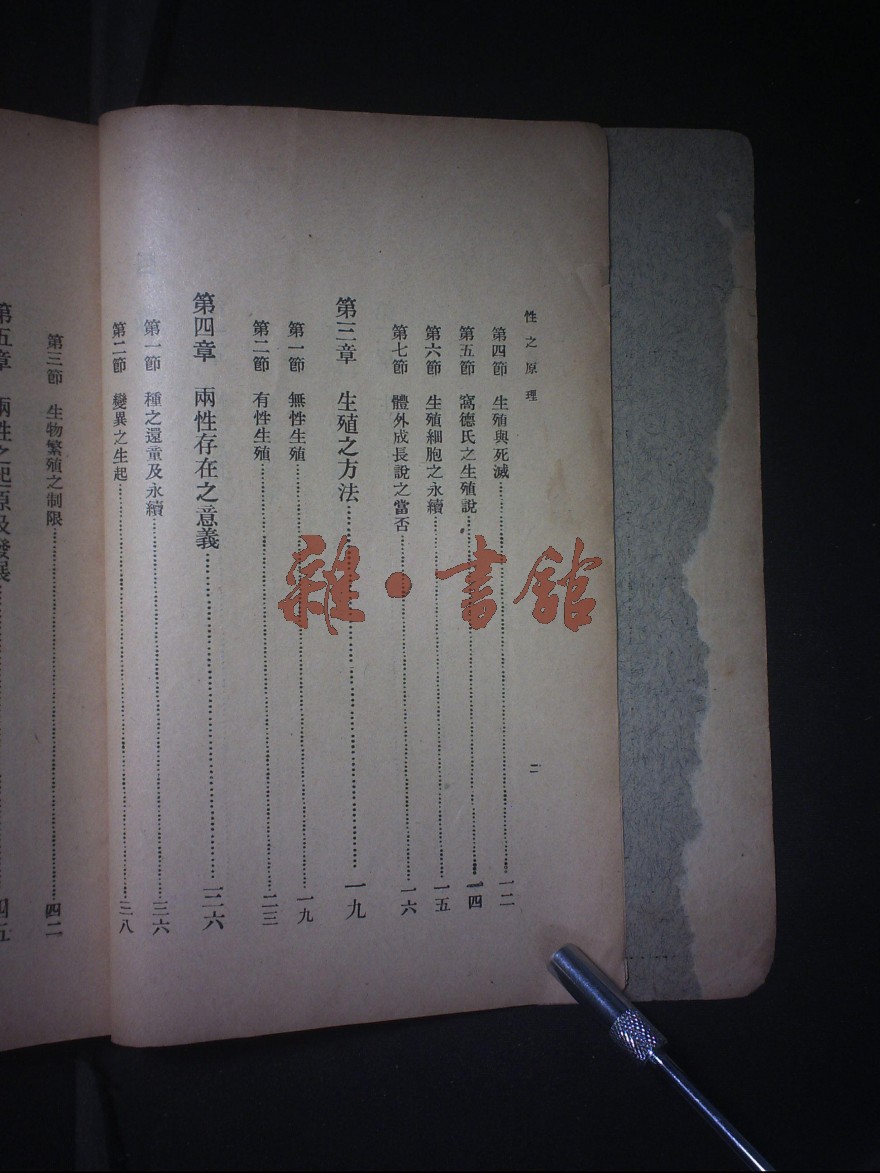 性之原理
二
第四節 生殖與死滅…………一二
第五節 窩德氏之生殖說…………一四
第六節 生殖細胞之永續…………一五
第七節 體外成長說之當否…………一六
第三章 生殖之方法…………一九
第一節 無性生殖…………一九
第二節 有性生殖…………二三
第四章 兩性存在之意義…………三六
第一節 種之還童及永續…………三六
第二節 變異之生起…………三八
第三節 生物繁殖之制限…………四二
第五章 兩性之起原及發展…………四五
雜·書館